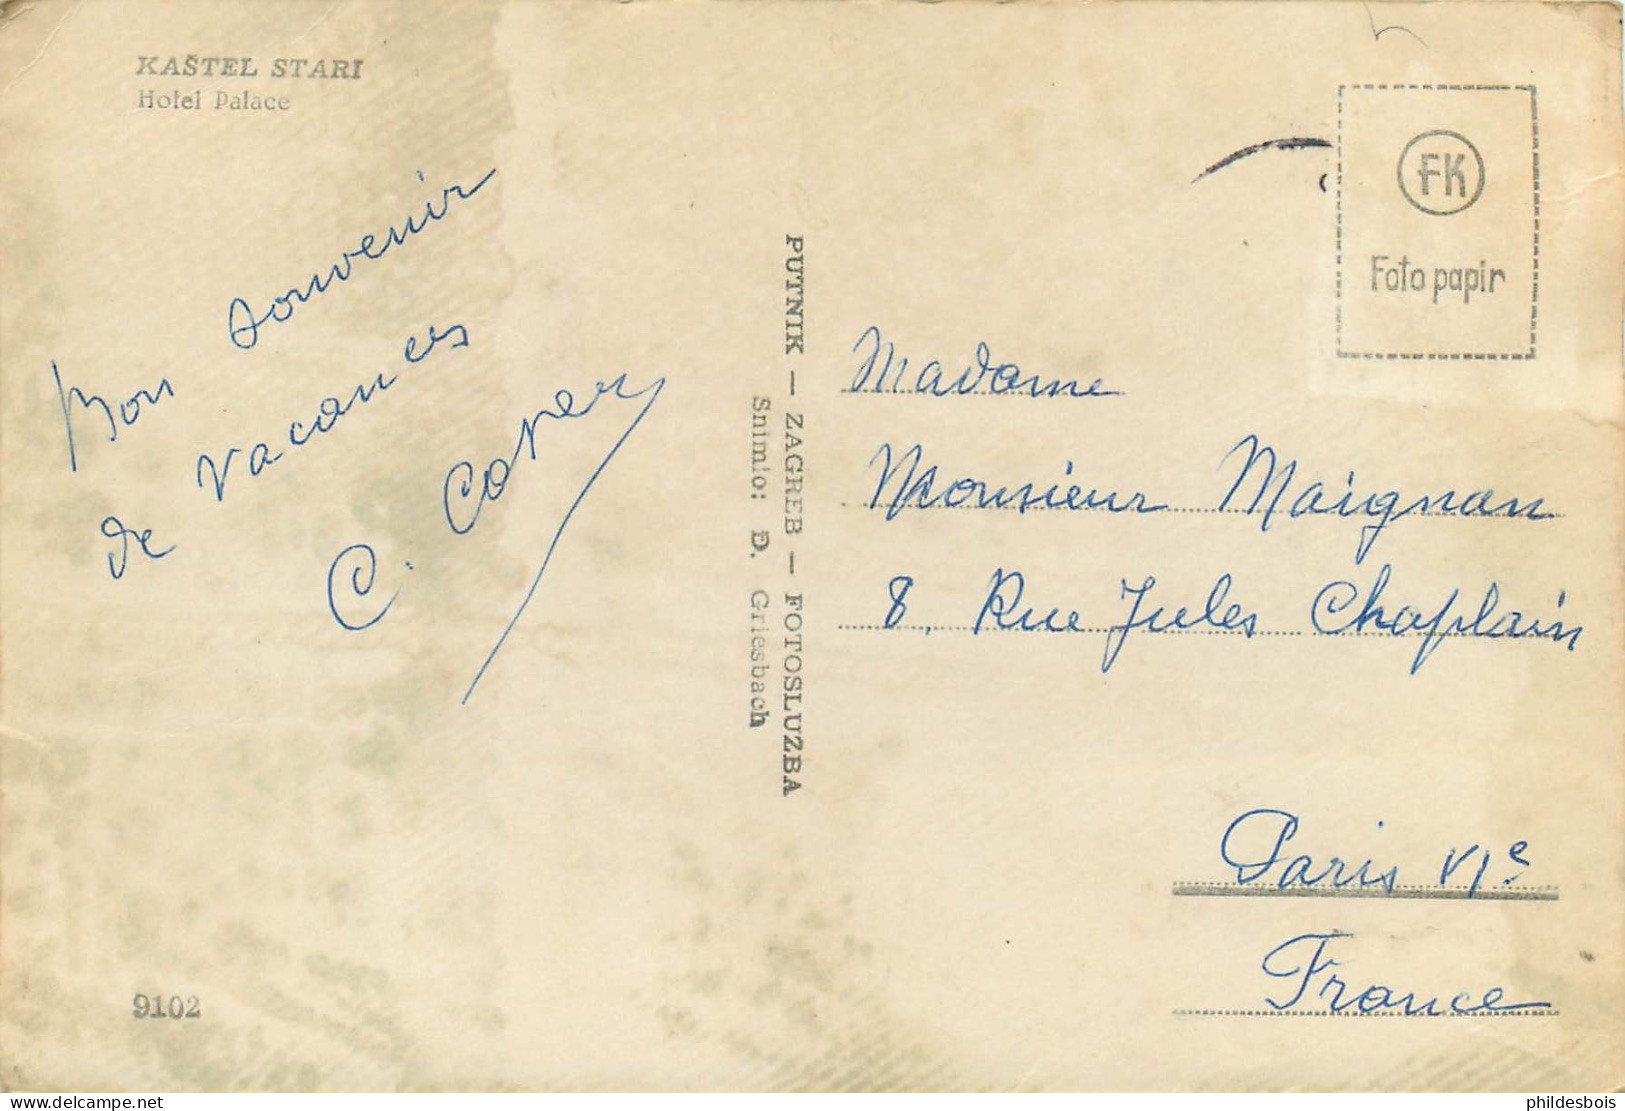 KAŠTEL STARI
Hotel Palace
Bon souvenir
de vacances
C.
9102
PUTNIK — ZAGREB — FOTOSLUŽBA
Snimio: Đ. Griesbach
FK
Foto papir
Madame
Monsieur Maignan
8, Rue Jules Chaplain
Paris VIe
France
delcampe.net
phildesbois